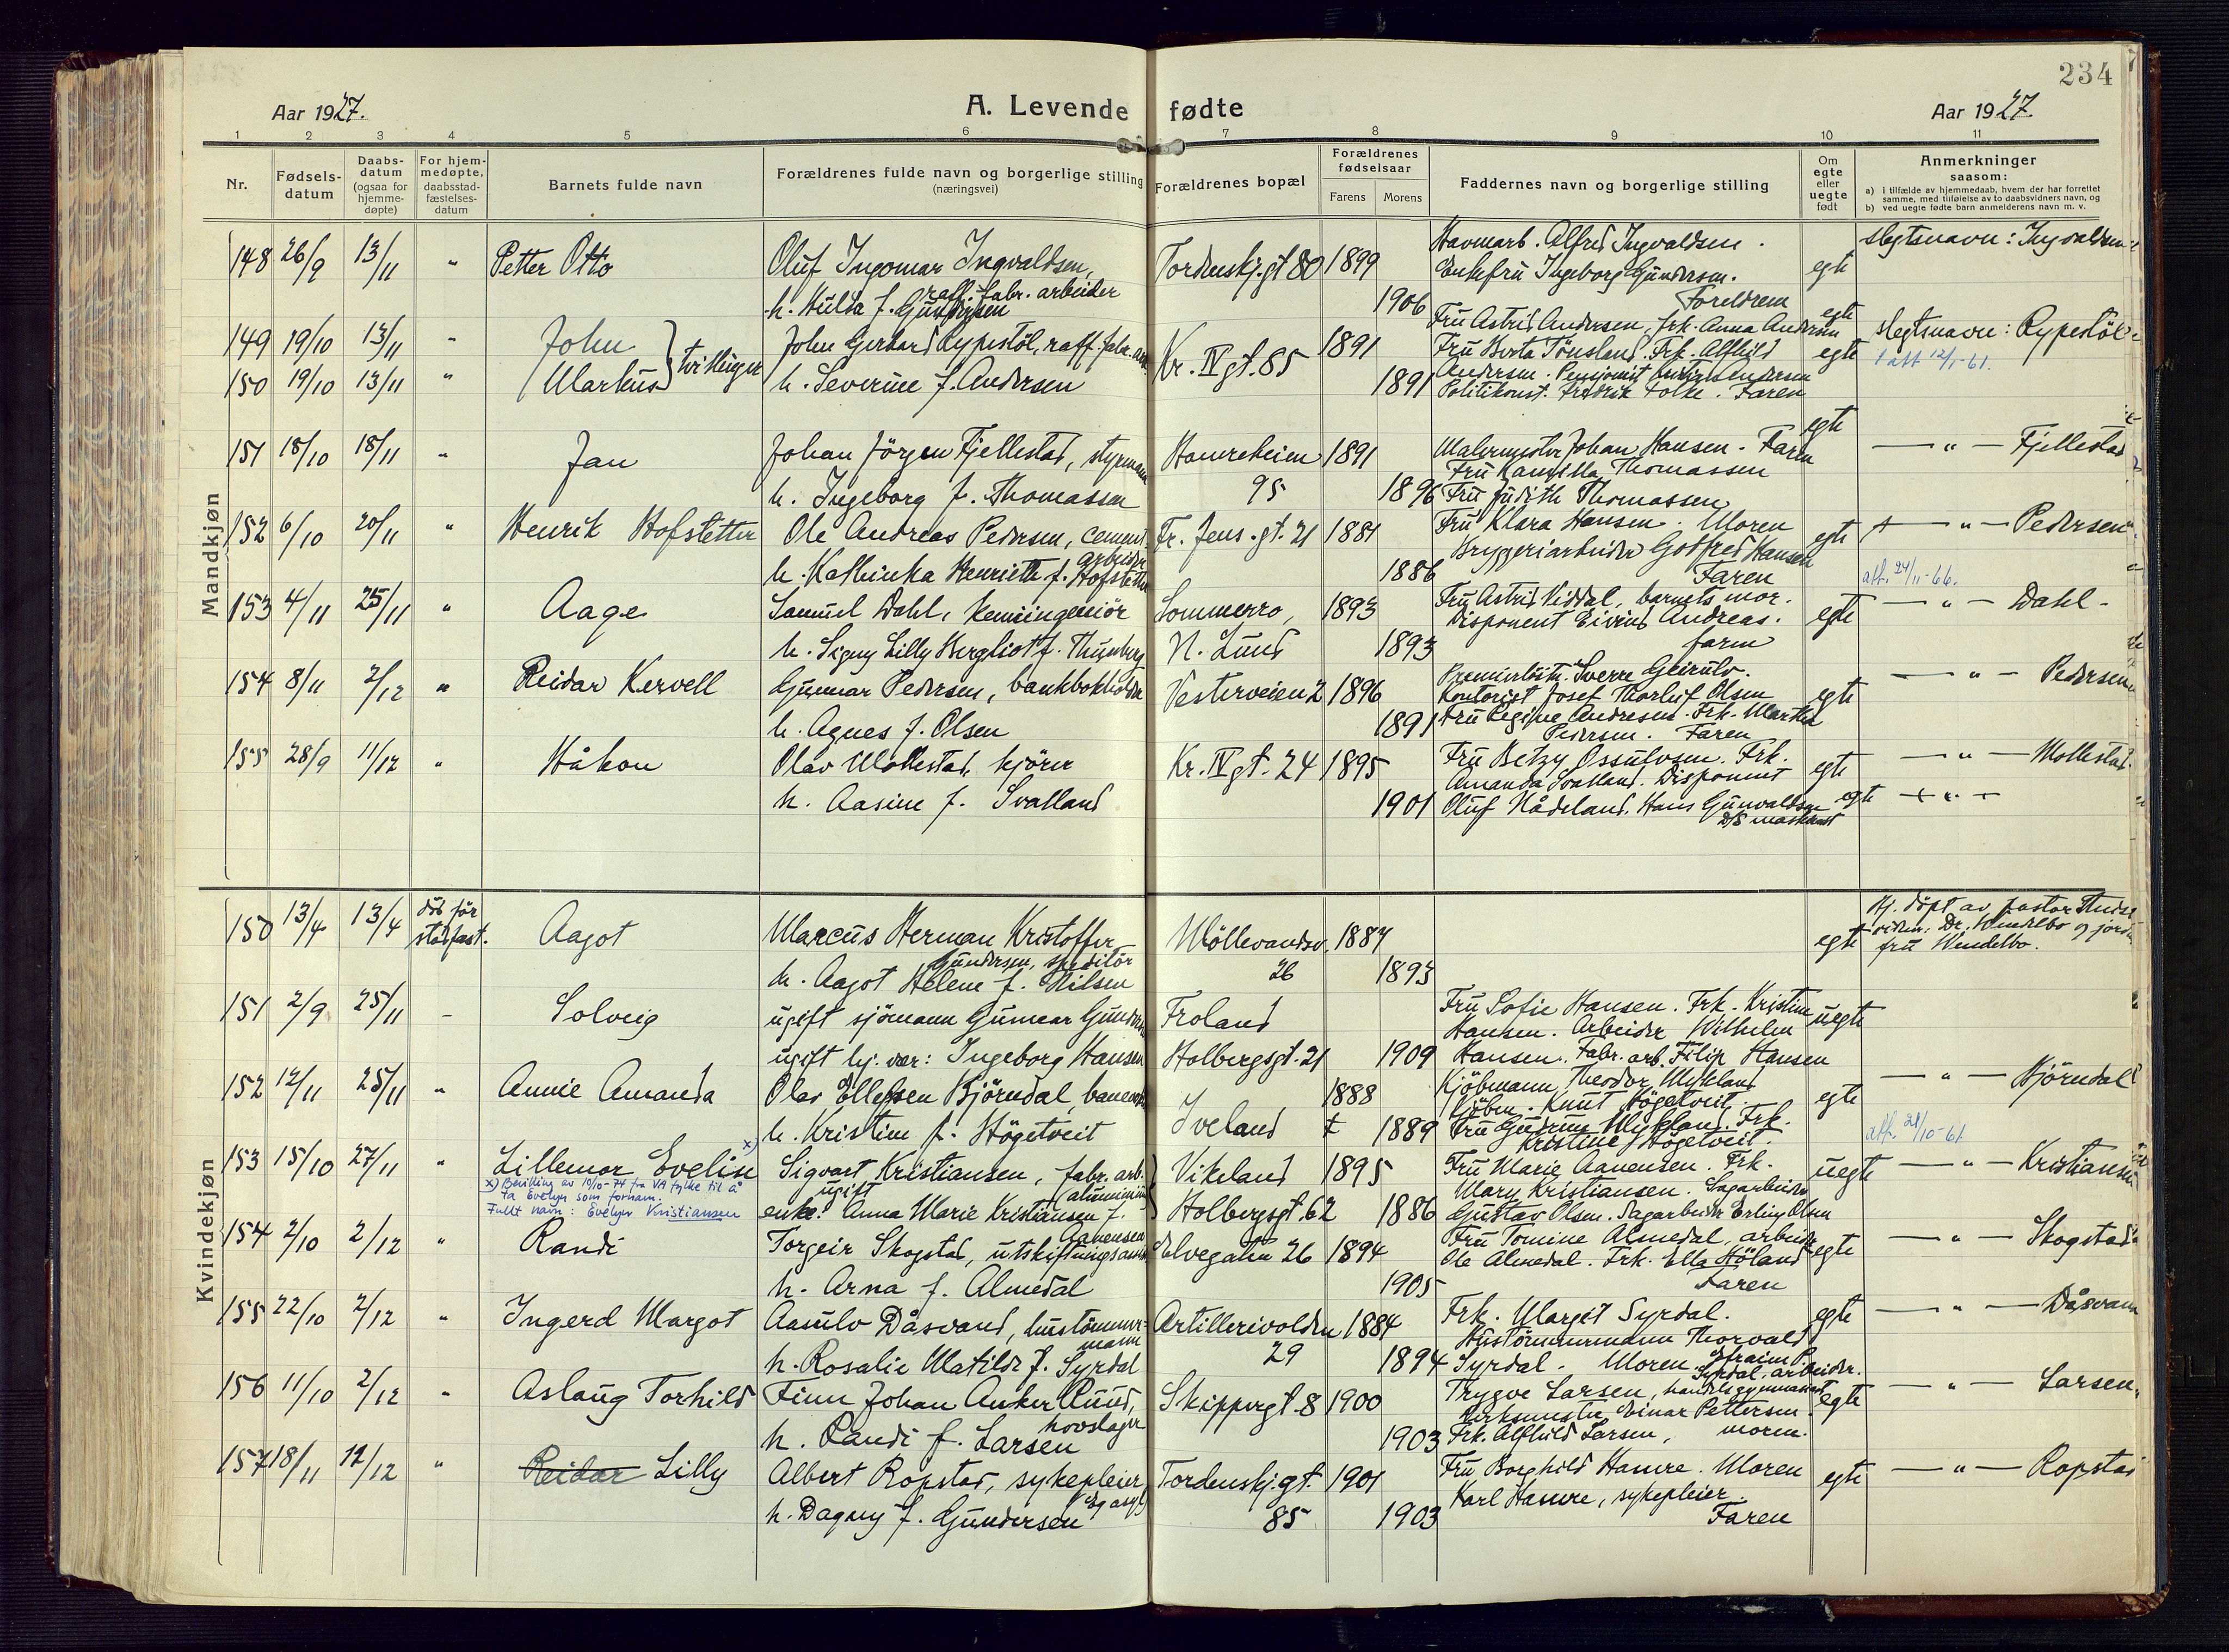 234
Aar 1927.
A. Levende fødte
Aar 1927.
1 2 3 4 5 6 7 8 9 10 11
Nr.
Fødsels-
datum
Daabs-
datum
(ogsaa for
hjemme-
døpte)
For hjem-
medøpte,
daabsstad-
fæstelses-
datum
Barnets fulde navn
Forældrenes fulde navn og borgerlige stilling
(næringsvei)
Forældrenes bopæl
Forældrenes
fødselsaar
Farens Morens
Faddernes navn og borgerlige stilling
Om
egte
eller
uegte
født
Anmerkninger
saasom:
a) i tilfælde av hjemmedaab, hvem der har forrettet
samme, med tilføielse av to daabsvidners navn, og
b) ved uegte fødte barn anmelderens navn m. v.
Mandkjøn
148 26/9 13/11 " Petter Otto
Oluf Ingomar Ingvaldsen,
raff. fabr. arbeider
h. Hulda f. Gundersen
Tordenskj.gt 80 1899
1906
Havnarb. Alfred Ingvaldsen.
Enkefru Ingeborg Gundersen.
Foreldrene
egte
slegtsnavn: Ingvaldsen
149 19/10 13/11 " John
150 19/10 13/11 " Markus } tvillinger
John Gerhard Rypestöl, raff. fabr. arb.
h. Severine f. Andersen
Kr. IV gt. 85 1891
1891
Fru Astrid Andersen, frk. Anna Andersen
Fru Berta Tönsland. Frk. Alfhild
Andersen. Pensjonist Andersen
Politikonst. Fredrik Folke. Faren
egte
egte
slegtsnavn: Rypestöl
1 att 12/1-61.
151 18/10 18/11 " Jan
Johan Jörgen Fjellestad, styrmann
h. Ingeborg f. Thomassen
Hamreheien 1891
95 1896
Malermester Johan Hansen. Faren
Fru Kamilla Thomassen
Fru Judith Thomassen
egte
— " — Fjellestad
152 6/10 20/11 " Henrik Hofstetter
Ole Andreas Pedersen, cement
arbeider
h. Kathinka Henriette f. Hofstetter
Fr. Jens.gt. 21 1881
1886
Fru Klara Hansen. Moren
Bryggeriarbeider Gotfred Hansen
Faren
egte
— " — Pedersen
att. 24/11-66.
153 4/11 25/11 " Aage
Samuel Dahl, kemiingeniör
h. Signy Lilly Bergliot f. Thunberg
Sommerro, 1893
N. Lund 1893
Fru Astrid Viddal, barnets mor.
Disponent Eivind Andreas.
faren
egte
— " — Dahl
154 8/11 2/12 " Reidar Kervell
Gunnar Pedersen, bankbokholder
h. Agnes f. Olsen
Vesterveien 2 1896
1891
Premierlöitn. Sverre Geirulv.
Kontorist Josef Thorleif Olsen
Fru Regine Andresen. Frk. Martha
Pedersen. Faren
egte
— " — Pedersen
155 28/9 11/12 " Håkon
Olav Mollestad, kjörer
h. Aasine f. Svaland
Kr. IV gt. 24 1895
1901
Fru Betzy Ossulvsen. Frk.
Amanda Svaland. Disponent
Oluf Hådeland. Hans Gunvaldsen
D/S maskinist
egte
egte
— " — Mollestad.
— " —
Kvindekjøn
150 13/4 13/4 död för
stadfast. Aagot
Marcus Herman Kristoffer
Gundersen, speditör
h. Aagot Helene f. Nilsen
Möllevandsv. 1884
26 1893
egte
Hj. döpt av pastor
vidn. Dr. Wendelbo og
fru Wendelbo.
151 2/9 25/11 – Solveig
ugift sjömann Gunnar Gundersen
ugift hj. vær: Ingeborg Hansen
Froland
Holbergsgt. 21 1909
Fru Sofie Hansen. Frk. Kristine
Hansen. Arbeider Wilhelm
Hansen. Fabr. arb. Filip Hansen
uegte
152 12/11 25/11 " Annie Amanda
Olav Ellefsen Björndal, banearb.
h. Kristine f. Högetveit
Iveland 1888
1889
Kjöbmann Theodor Mykland
Kjöbm. Knut Högetveit.
Fru Gudrun Mykland. Frk.
Kristine Högetveit.
egte
— " — Björndal
att. 21/10-61
153 15/10 27/11 " Lillemor Eveline x)
x) Bevilling av 10/10-74 fra VA fylke til å
ta Evelyn som fornavn.
Fullt navn: Evelyn Kristiansen
Sigvart Kristiansen, fabr. arb.
ugift aluminium
enke: Anna Marie Kristiansen f.
Aanensen
Vikeland 1895
Holbergsgt. 62 1886
Fru Marie Aanensen. Frk.
Mary Kristiansen. Sagarbeider
Gustav Olsen. Sagarbeider Erling Olsen
uegte
— " — Kristiansen
154 2/10 2/12 " Randi
Torgeir Skogstad, utskiftningsass.
h. Arna f. Almedal
Elvegaten 26 1894
1905
Fru Tomine Almedal, arbeider
Ole Almedal. Frk. Ella Höland
Faren
egte
— " — Skogstad
155 22/10 2/12 " Ingerd Margot
Aasulv Dåsvand, hustömmer-
mann
h. Rosalie Matilde f. Syrdal
Artillerivolden 1884
29 1894
Frk. Margit Syrdal.
Hustömmermann Thorvald
Syrdal. Moren. Efraim P.
Syrdal, arbeider.
egte
— " — Dåsvann
156 11/10 2/12 " Aslaug Torhild
Finn Johan Anker Ruud,
hovslager
h. Randi f. Larsen
Skippergt. 8 1900
1903
Trygve Larsen, handelsgymnasiast
Verksmester Einar Pettersen.
Frk. Alfhild Larsen, moren.
egte
— " — Larsen
157 18/11 12/12 " Reidar Lilly
Albert Ropstad, sykepleier
Eg asyl
h. Dagny f. Gundersen
Tordenskj.gt. 1901
85 1903
Fru Borghild Hamre. Moren
Karl Hamre, sykepleier.
Faren
egte
— " — Ropstad